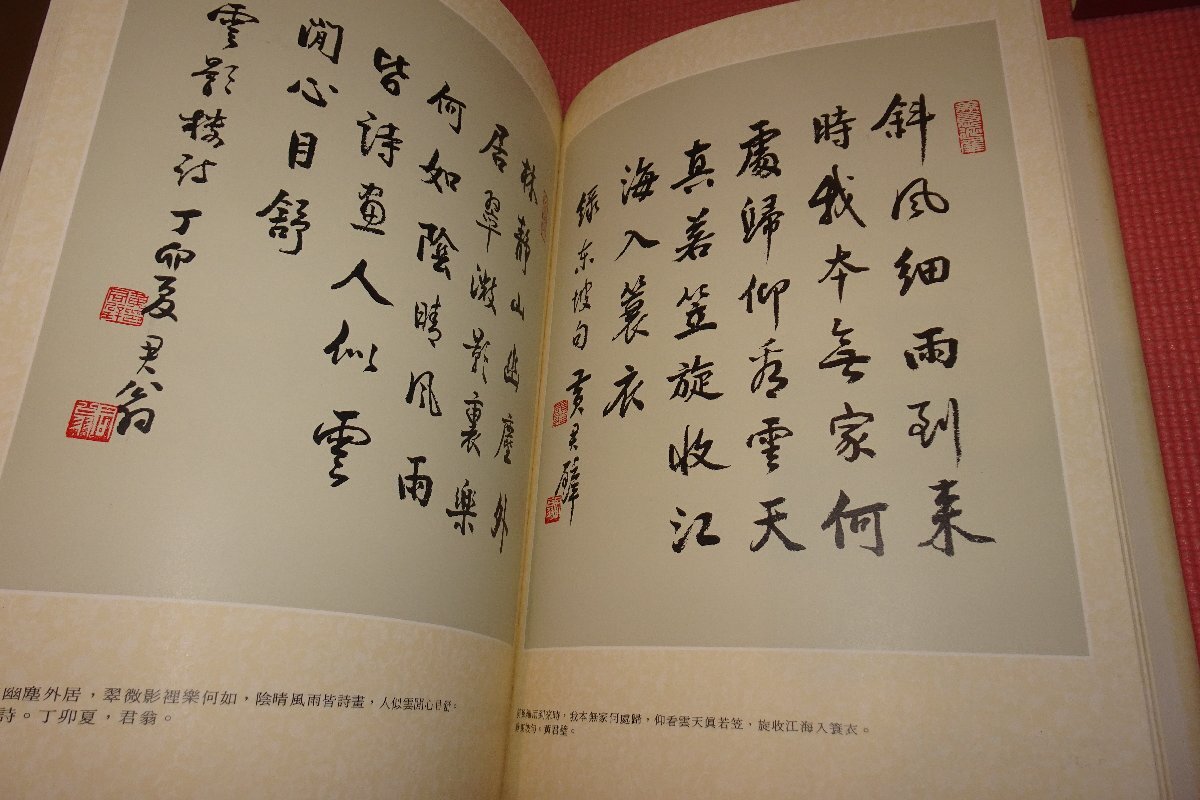 斜風細雨到来
時我本無家何
處歸仰看雲天
真若笠旋收江
海入蓑衣
錄東坡句 黃君璧
時,我本無家何處歸,仰看雲天眞若笠,旋收江海入簑衣。
句。黃君璧。
林靜山幽塵外
居翠微影裏樂
何如陰晴風雨
皆詩畫人似雲
閒心目舒
雲影樓詩 丁卯夏 君翁
幽塵外居,翠微影裡樂何如,陰晴風雨皆詩畫,人似雲閒心目舒。
詩。丁卯夏,君翁。